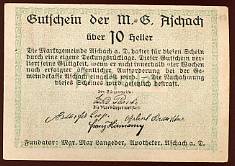 Gutschein der M.-G. Aschach
über 10 Heller
Die Marktgemeinde Aschach a. D. haftet für diesen Schein
durch eine eigene Deckungsrücklage. Dieser Gutschein ver-
liert seine Gültigkeit, wenn er nicht innerhalb vier Wochen
nach erfolgter öffentlicher Aufforderung bei der Ge-
meindekasse Aschach eingelöst wird. — Die Nachahmung
dieses Scheines wird gesetzlich bestraft.
Der Bürgermeister:
Die Bürgermeisterstellvertreter:
Fundator: Mgr. Max Gangeder, Apotheker, Aschach a. D.